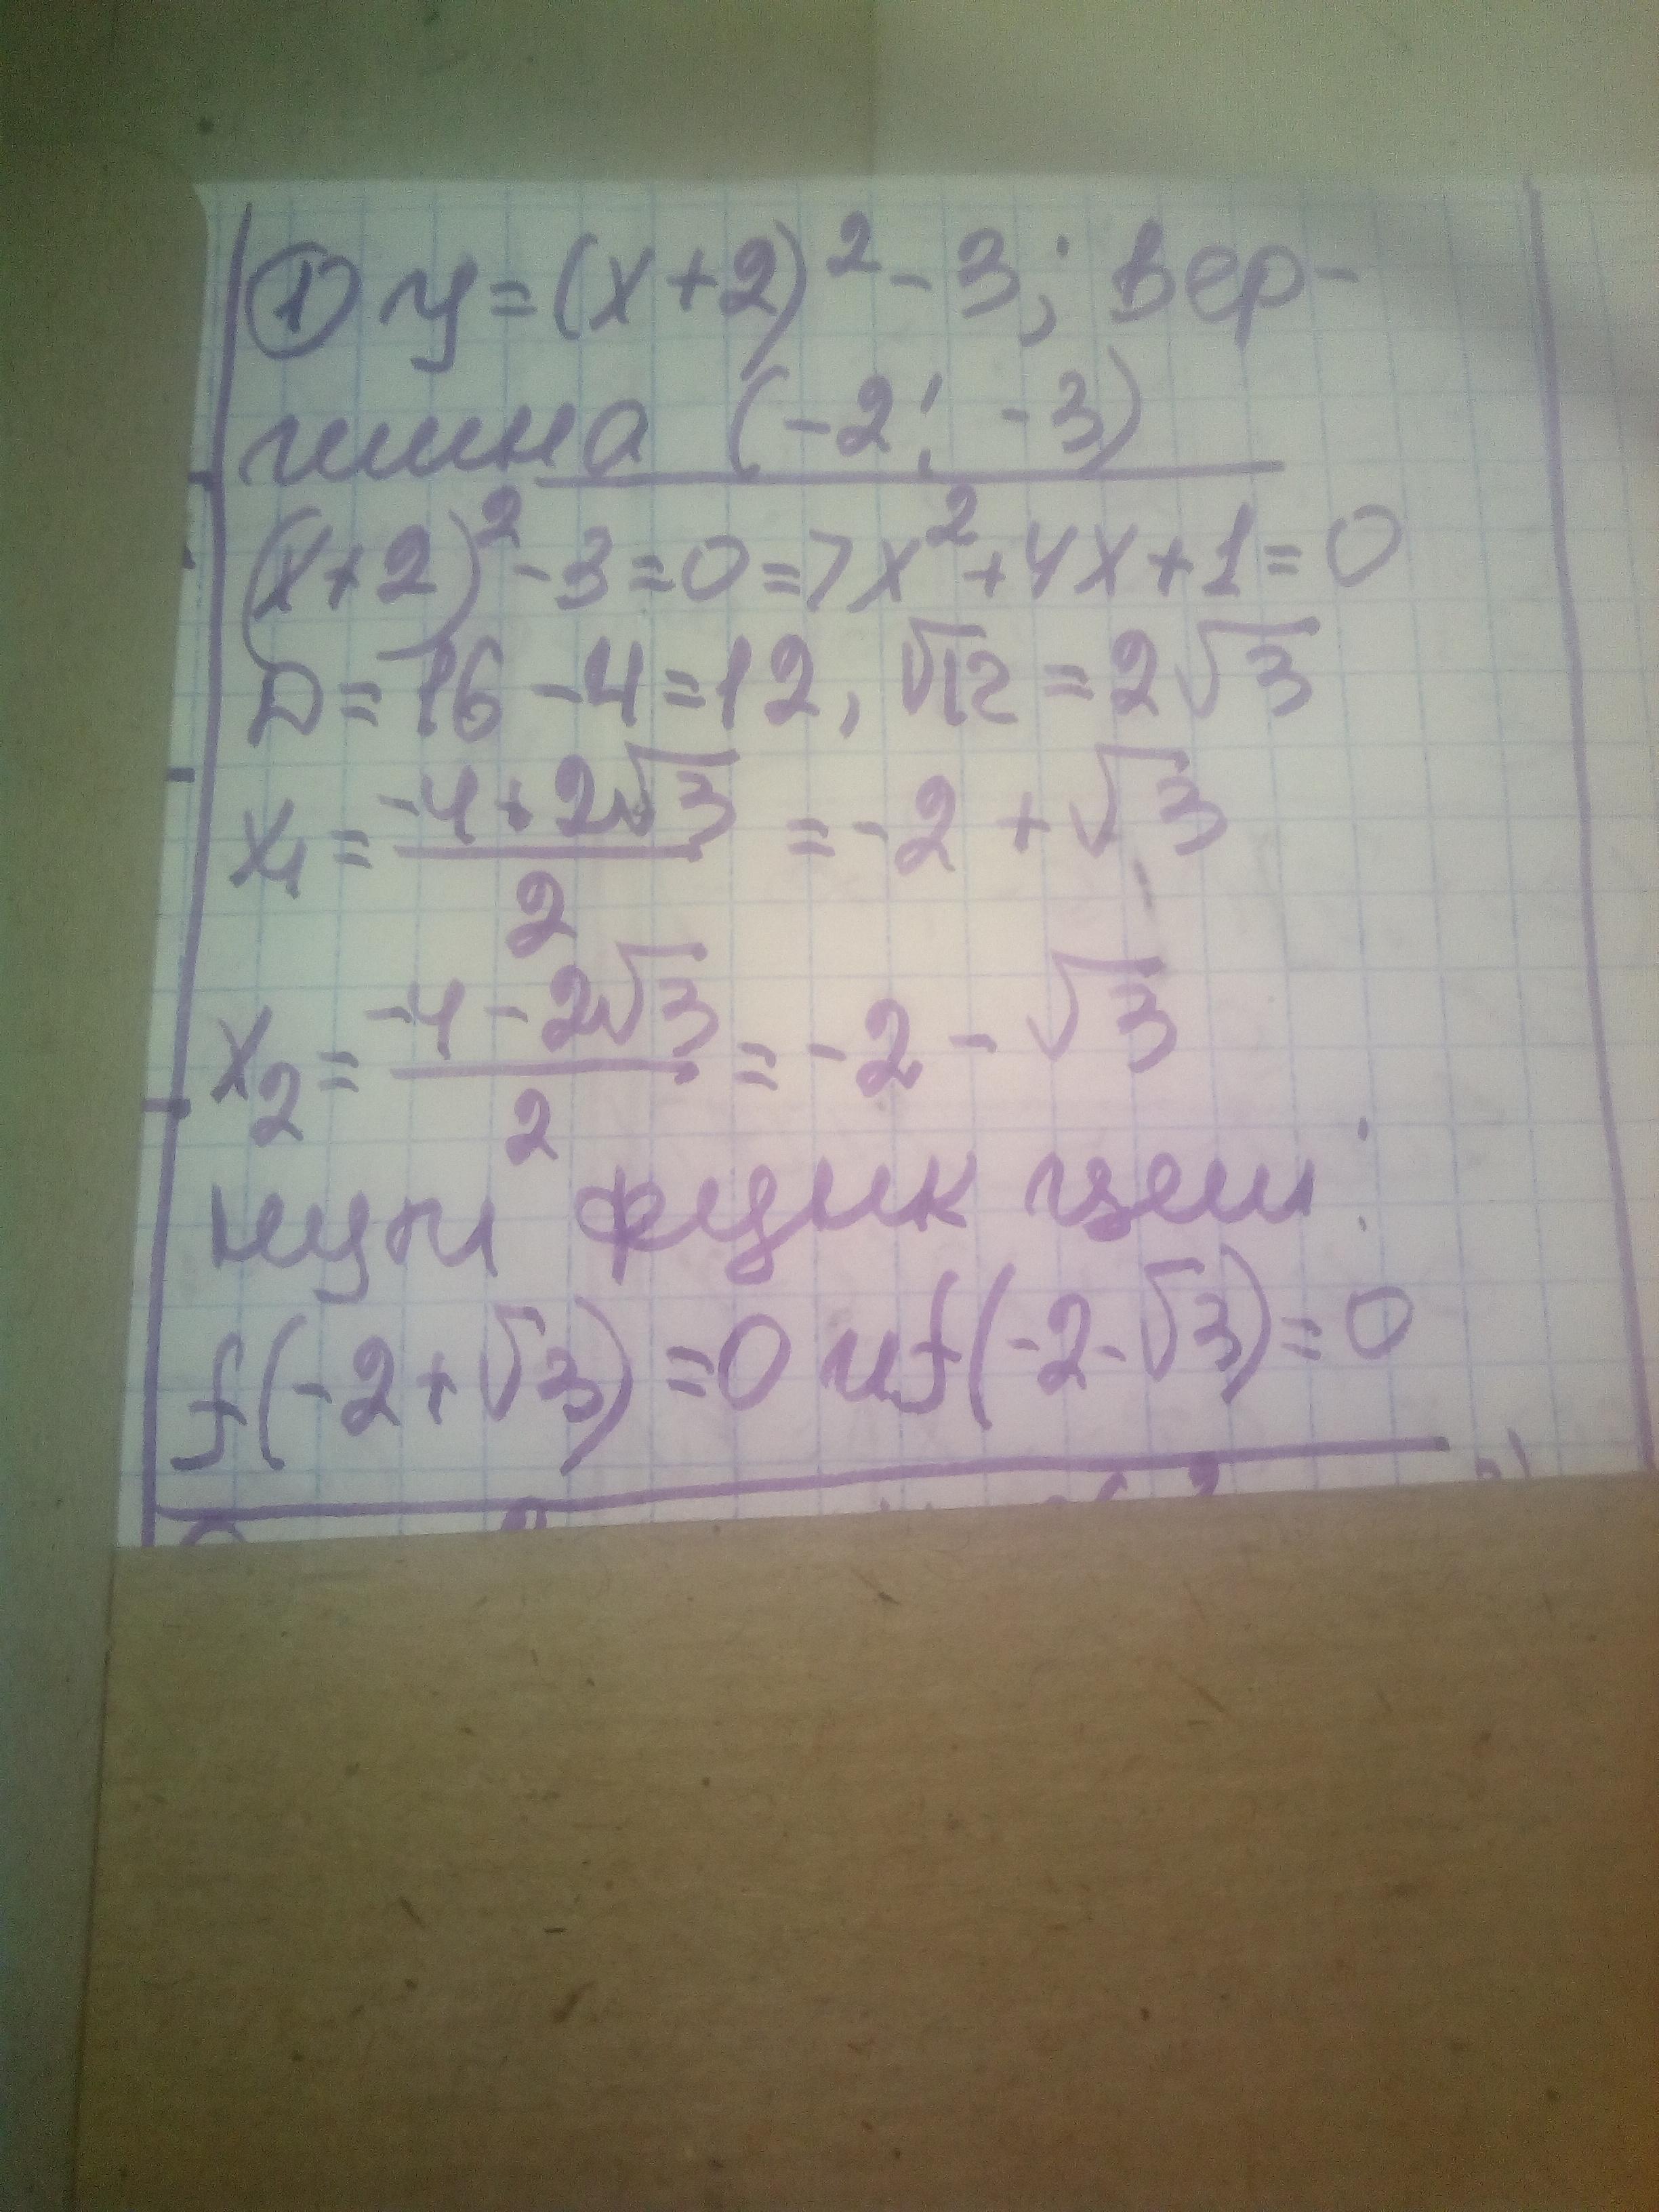 ① y=(x+2)²-3; вер-
шина (-2; -3)
(x+2)²-3=0=>x²+4x+1=0
D=16-4=12, √12=2√3
x₁=(-4+2√3)/2=-2+√3
x₂=(-4-2√3)/2=-2-√3
нули функции:
f(-2+√3)=0 и f(-2-√3)=0